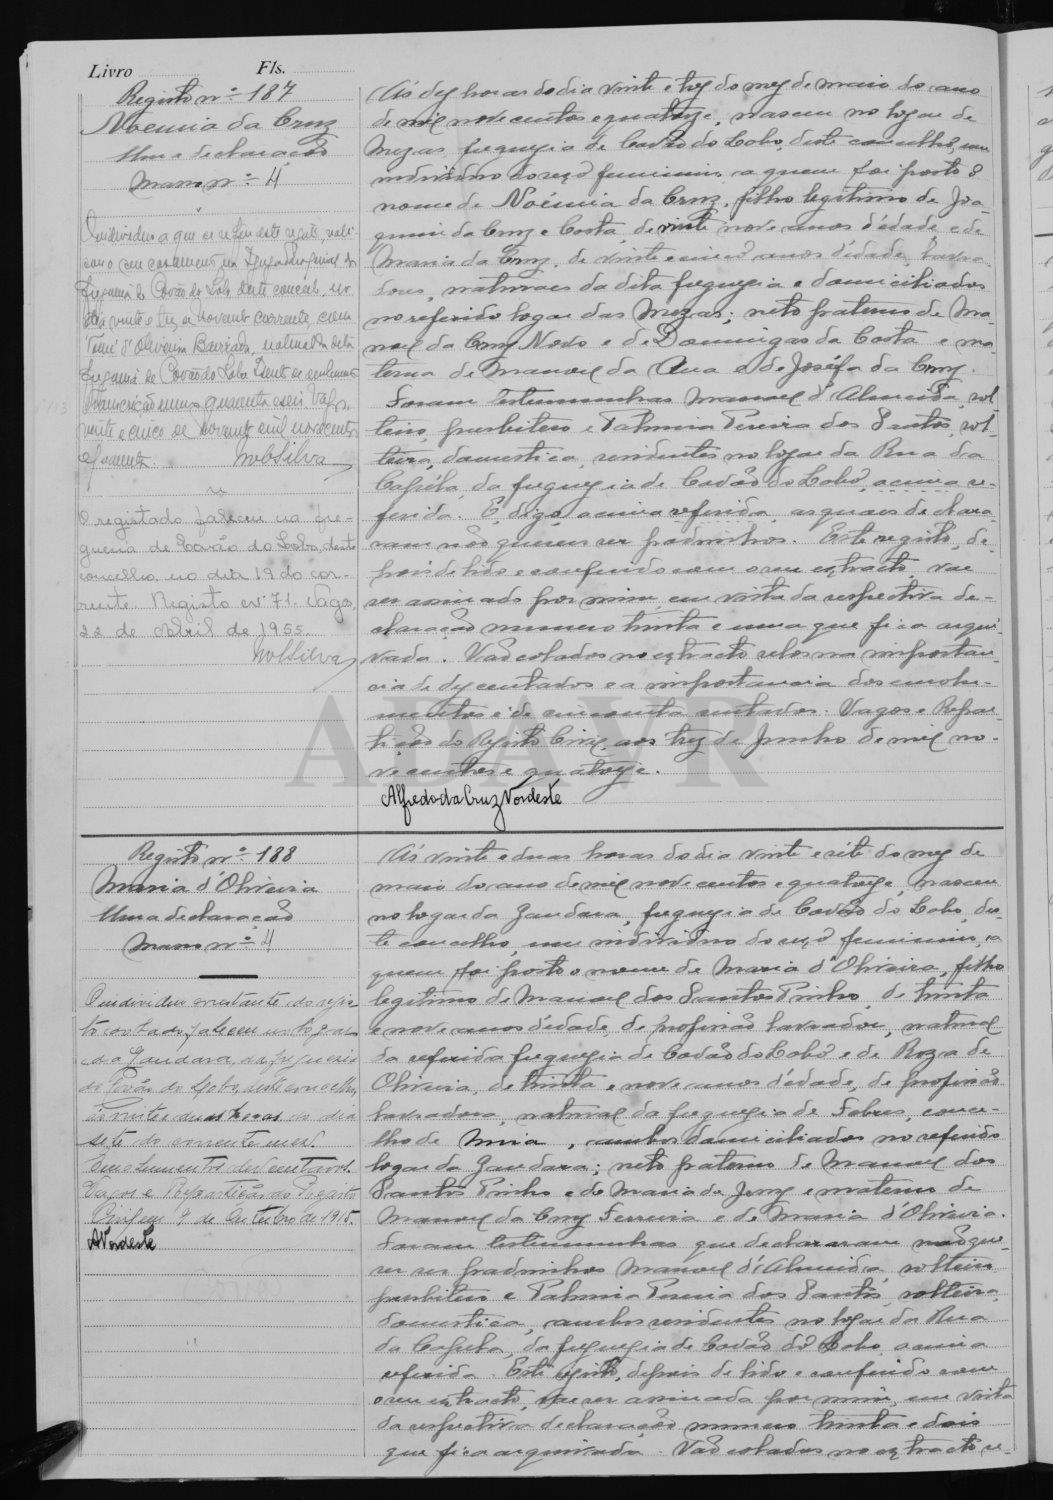 Livro Fls.
Registo nº 187
Noémia da Cruz
Uma declaração
Maço nº 4
O individuo a que se refere este registo, reali-
sou o seu casamento na Igreja Paroquial da
freguesia de Covão do Lobo, deste concelho, no
dia vinte e tres de novembro corrente, com
d'Oliveira natural da dita
freguesia de Covão do Lobo.
Transcrição numero quarenta e seis. Vagos,
vinte e cinco de novembro de mil novecentos
e quarenta.
O registado faleceu na fre-
guesia de Covão do Lobo, deste
concelho, no dia 19 do cor-
rente. Registo nº 71. Vagos,
22 de Abril de 1955.
Ás dez horas do dia vinte e trez do mez de maio do ano
de mil novecentos e quatorze, nasceu no logar de
Mezas, freguezia de Covão do Lobo, deste concelho, um
individuo do sexo feminino, a quem foi posto o
nome de Noémia da Cruz, filho legitimo de Joa-
quim da Cruz e Costa, de vinte nove anos d'edade, e de
Maria da Cruz, de vinte e cinco anos d'edade, lavra-
dores, naturaes da dita freguezia e domiciliados
no referido logar das Mezas; neto paterno de Ma-
noel da Cruz Novo e de Domingas da Costa e ma-
terno de Manoel da Cruz e de Joséfa da Cruz.
Foram testemunhas Manoel d'Almeida, sol-
teiro, presbitero e Palmira Pereira dos Santos, sol-
teira, domestica, residentes no logar da Rua da
Capéla, da freguezia de Covão do Lobo, acima re-
ferida. E, digo, acima referida, as quaes decla-
ram não querem ser padrinhos. Este registo, de-
pois de lido e conferido com o seu extracto, vae
ser assinado por mim, em vista da respectiva de-
claração numero trinta e uma que fica arqui-
vada. Vão colados no extracto selos na importan-
cia de dez centavos e a importancia dos emolu-
mentos é de cincoenta centavos. Vagos e Repar-
tição do Registo Civil, aos trez de Junho de mil no-
vecentos e quatorze.
Alfredo da Cruz Nordeste
Registo nº 188
Maria d'Oliveira
Uma declaração
Maço nº 4
O individuo constante do regis-
to ao lado, faleceu no logar
da Gandara, da freguesia
do Covão do Lobo, deste concelho,
ás vinte e duas horas do dia
sete do corrente mez.
Emolumentos dez centavos.
Vagos e Repartição do Registo
Civil, em 9 de Outubro de 1915.
A Nordeste
Ás vinte e duas horas do dia vinte e sete do mez de
maio do ano de mil novecentos e quatorze, nasceu
no logar da Gandara, freguezia de Covão do Lobo, des-
te concelho, um individuo do sexo feminino, a
quem foi posto o nome de Maria d'Oliveira, filho
legitimo de Manoel dos Santos Pinho, de trinta
e nove anos d'edade, de profissão lavrador, natural
da referida freguezia de Covão do Lobo e de Roza de
Oliveira, de trinta e nove anos d'edade, de profissão
lavradora, natural da freguezia de Febres, conce-
lho de Mira, ambos domiciliados no referido
logar da Gandara; neto paterno de Manoel dos
Santos Pinho e de Maria de Jesus e materno de
Manoel da Cruz Ferreira e de Maria d'Oliveira.
Foram testemunhas que declararam não que-
rer ser padrinhos Manoel d'Almeida, solteiro
presbitero e Palmira Pereira dos Santos, solteira,
domestica, ambos residentes no logar da Rua
da Capela, da freguezia de Covão do Lobo, acima
referida. Este registo, depois de lido e conferido com
o seu extracto, vae ser assinado por mim, em vista
da respectiva declaração numero trinta e dois
que fica arquivada. Vão colados no extracto se-
ADAVR